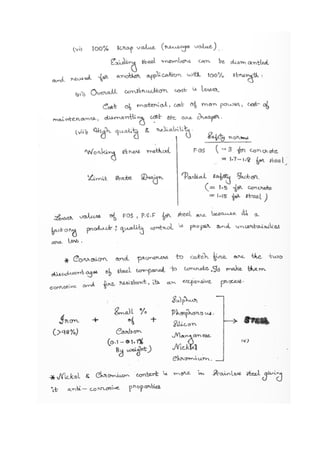 (v) 100% scrap value (revenge value).
Existing steel members can be dismantled
and reused for another application with 100% strength.
(vi) Overall construction cost is lower
Cost of material, cost of man power, cost of
maintenance, dismantling cost etc are cheaper.
(vii) High quality & reliability.
Safety norms
Working stress method FOS (- 3 for concrete
= 1.7-1.8 for steel
Limit State Design Partial Safety Factor
(= 1.5 for concrete
= 1.15 for steel)
Lower values of FOS, P.S.F for steel are because it is a
factory product; quality control is proper and uncertainities
are less.
* Corrosion and proneness to catch fire are the two
disadvantages of steel compared to concrete. To make them
corrosive and fire resistant, its an expensive process.
Sulphur
Iron + Small % + Phosphorous → STEEL
(>98%) of Silicon
Carbon Manganese
(0.1 - 1.1% Nickel
By weight) Chromium.
* Nickel & Chromium content is more in Stainless steel giving
it anti-corrosive properties